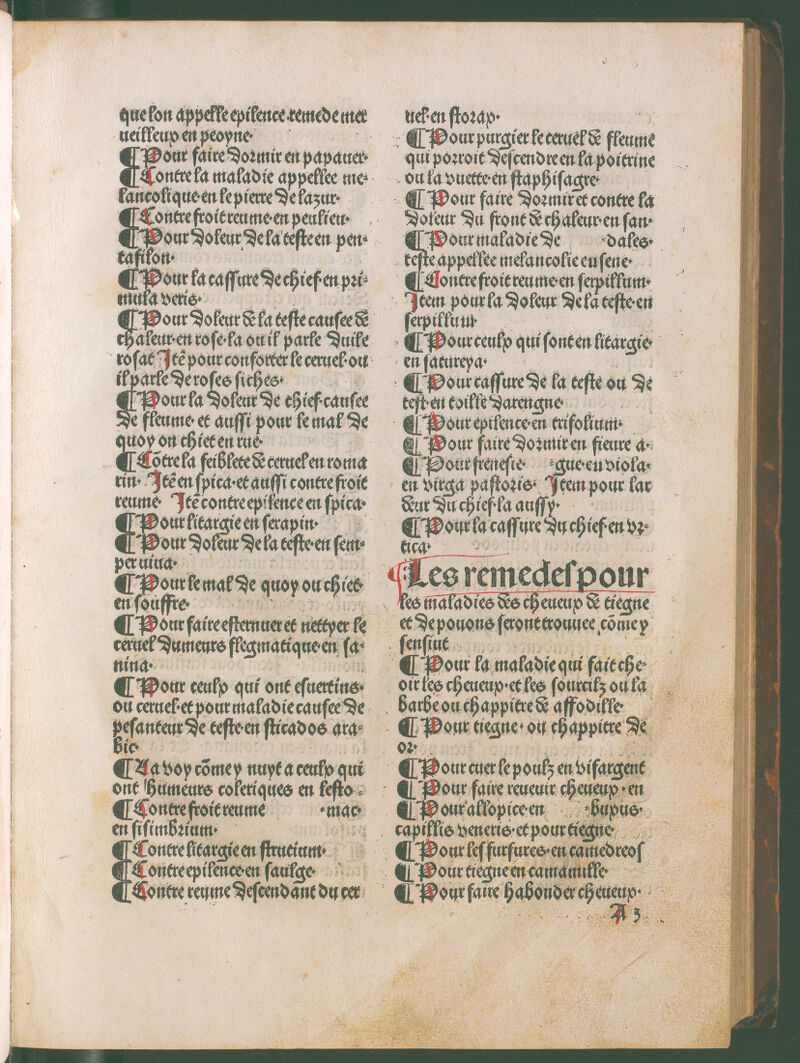 que lon appelle epilence.remede mer
ueilleux en peoyne·
¶ Pour faire dormir en papauer·
¶ Contre la maladie appellee me-
lancolique·en le pierre de lazur·
¶ Contre froit reume·en peulieu·
¶ Pour doleur de la teste en pen-
tafilon·
¶ Pour la cassure de chief·en pri-
mula veris·
¶ Pour doleur de la teste causee de
chaleur·en rose·la ou il parle duile
rosat Itē pour conforter le ceruel·ou
il parle de roses siches·
¶ Pour la doleur de chief·causee
de fleume· et aussi pour le mal de
quoy on chiet en rue·
¶ Cōtre la feiblete de ceruel en roma
rin· Itē en spica·et aussi contre froit
reume· Itē contre epilence en spica·
¶ Pour litargie en serapin·
¶ Pour doleur de la teste·en sem-
per uiua·
¶ Pour le mal de quoy ou chiet·
en souffre·
¶ Pour faire esternuer et nettyer le
ceruel dumeurs flegmatique·en sa-
nina·
¶ Pour ceulx qui ont esuertins·
ou ceruel·et pour maladie causee de
pesanteur de teste·en sticados ara-
bic·
¶ La voy cōme y nuyt a ceulx qui
ont humeurs coleriques en lesto-
¶ Contre froit reume ·mac·
en sisimbrium·
¶ Contre litargie en strutium·
¶ Contre epilence·en saulge·
¶ Contre reume descendant du cer
uel·en storax·
¶ Pour purgier le ceruel de fleume
qui porroit descendre en la poitrine
ou la vuette·en staphisagre·
¶ Pour faire dormir·et contre la
doleur du front de chaleur·en san-
¶ Pour maladie de ·dales·
teste appellee melancolie en sene·
¶ Contre froit reume·en serpillum·
Item pour la doleur de la teste·en
serpillum·
¶ Pour ceulx qui sont en litargie·
en satureya·
¶ Pour cassure de la teste ou de
test·en toille darengne·
¶ Pour epilence·en trifolium·
¶ Pour faire dormir en fieure a-
¶ Pour frenesie· ·gue·en viola·
en virga pastoris· Item pour lar
deur du chief·la aussy·
¶ Pour la cassure du chief·en vr-
tica·
¶ Les remedes pour
les maladies des cheueux de tiegne
et de pouons seront trouuee ,cōme y
sensiut
¶ Pour la maladie qui fait che-
oir les cheueux·et les sourcilz ou la
barbe ou chappitre de affodille·
¶ Pour tiegne· ou chappitre de
or·
¶ Pour tuer le poulz en vifargent
¶ Pour faire reuenir cheueux·en
¶ Pour allopice·en ·bupus·
capillis veneris·et pour tiegne·
¶ Pour les furfures·en camedreos
¶ Pour tiegne en camamille·
¶ Pour faire habonder cheueux·
A 3